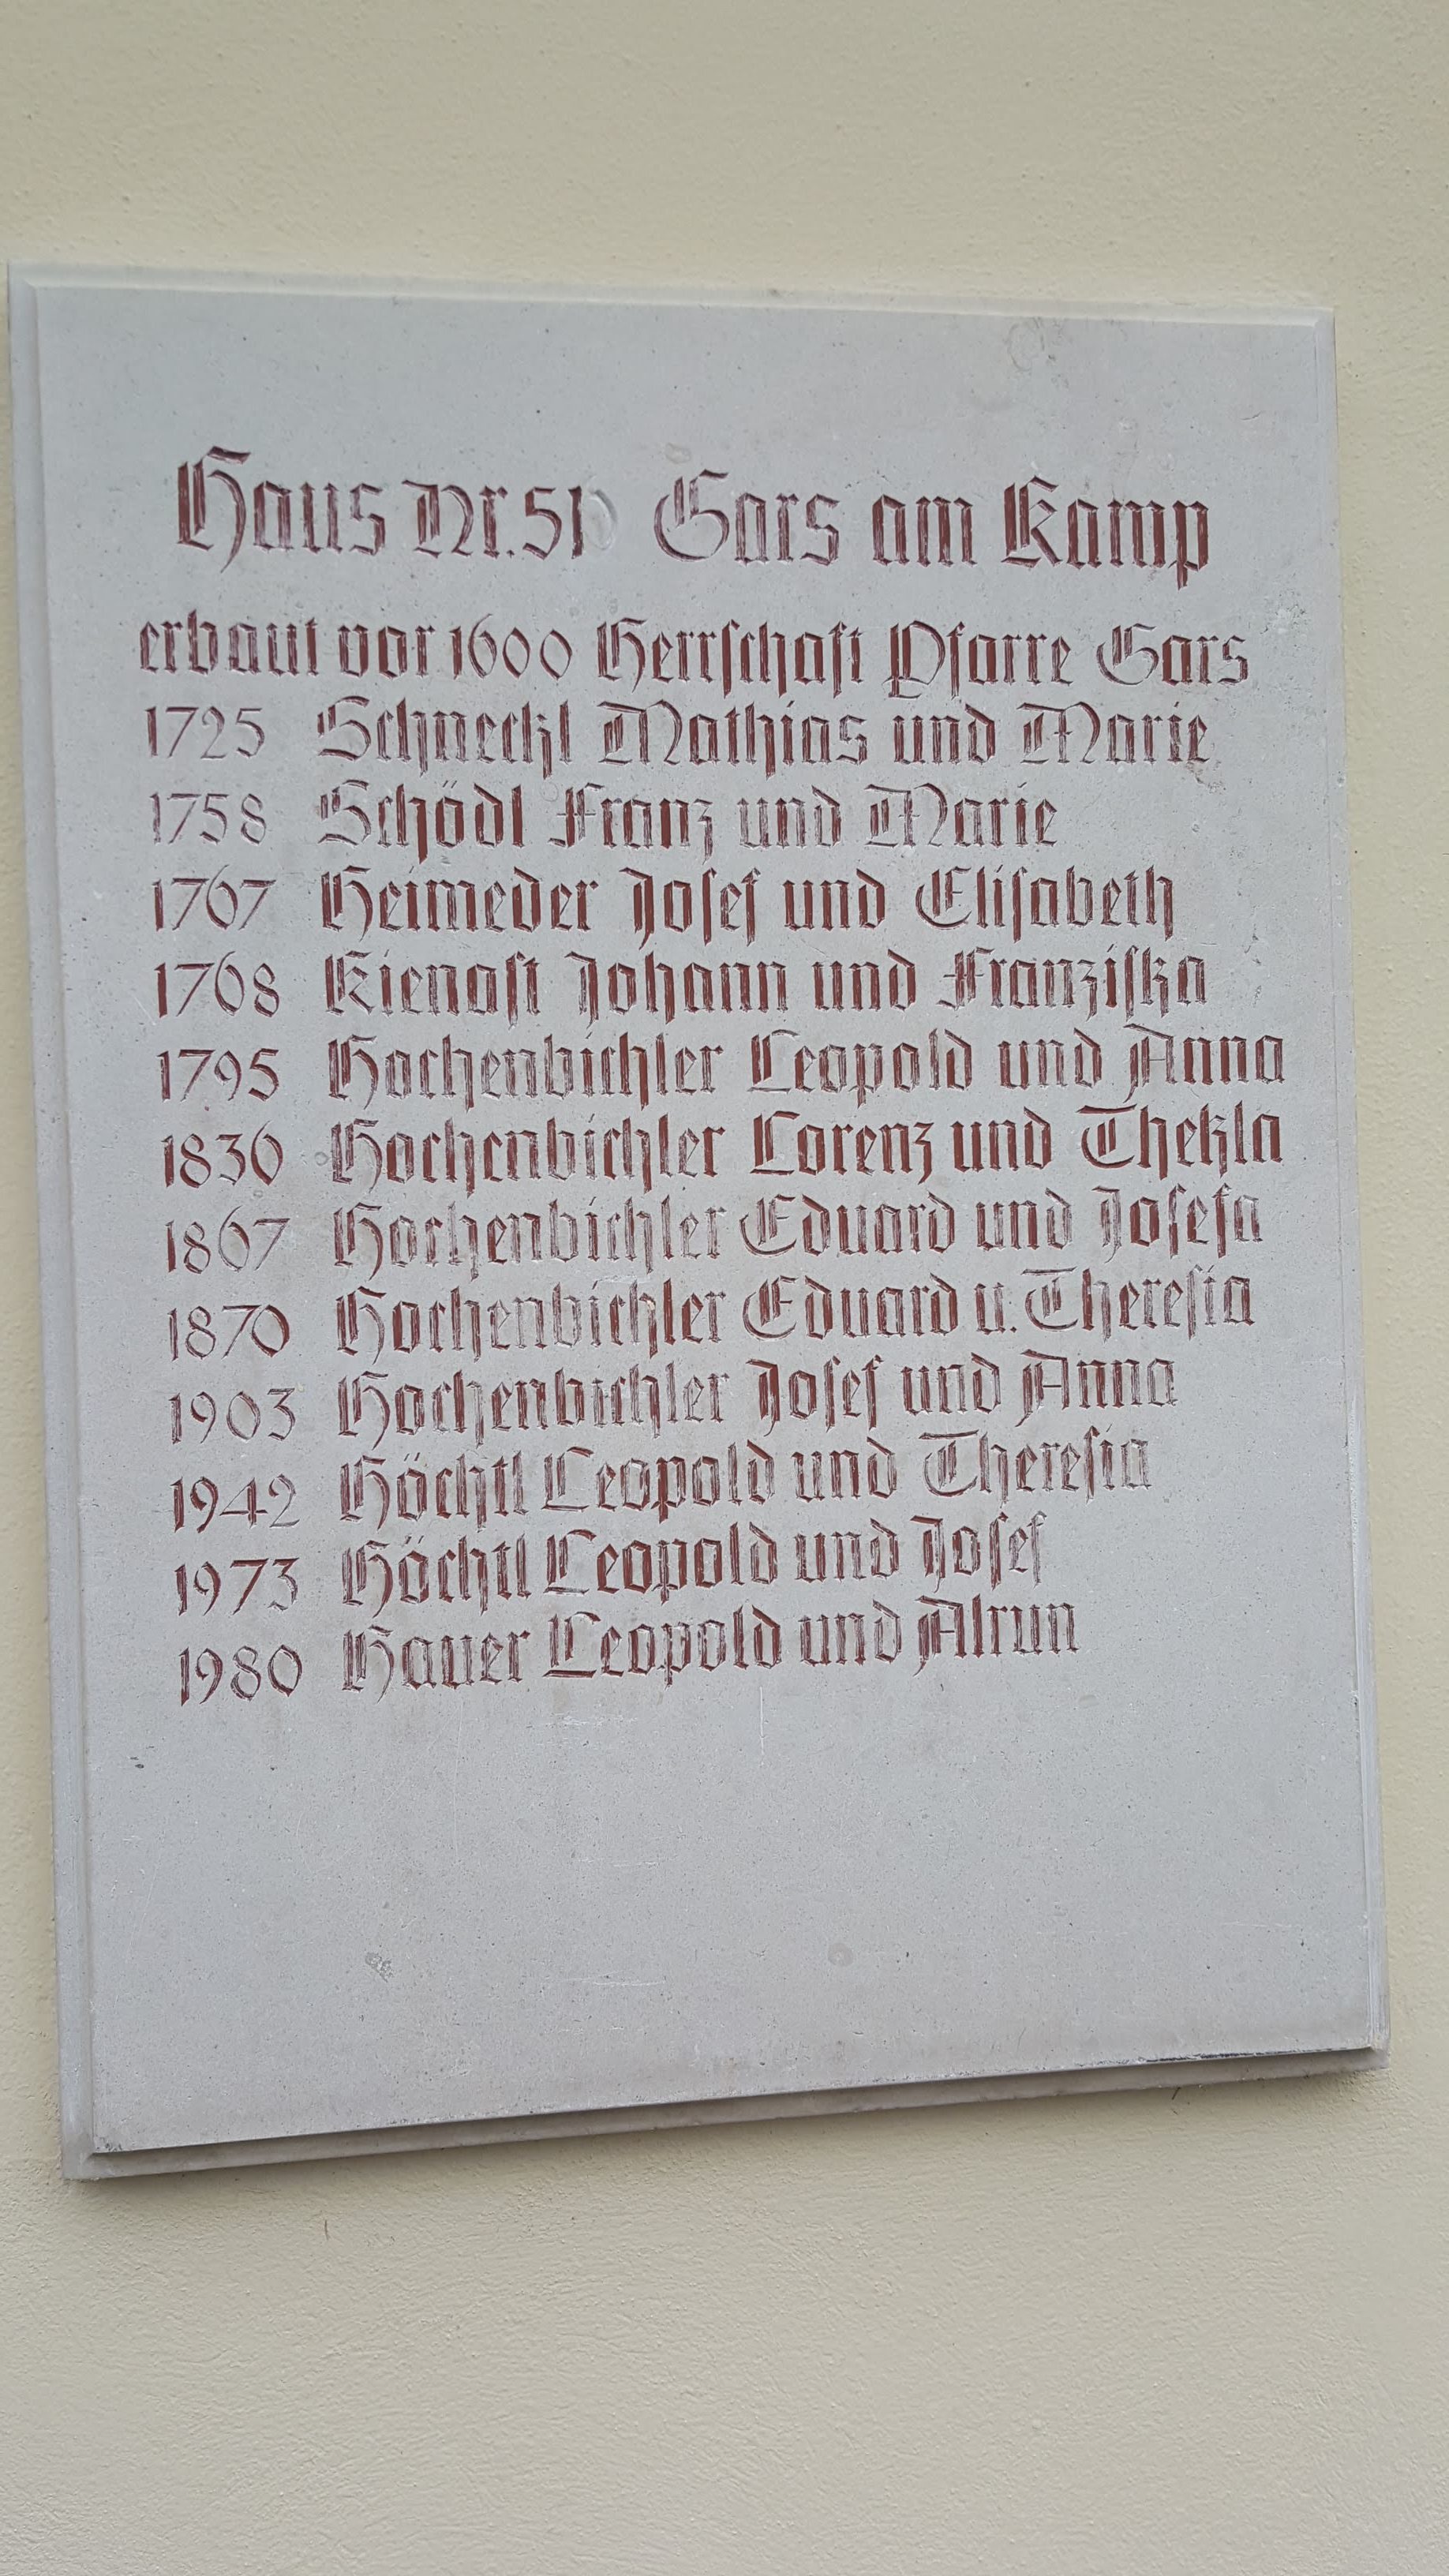 Haus Nr. 51 Gars am Kamp
erbaut vor 1600 Herrschaft Pfarre Gars
1725 Schneckl Mathias und Marie
1758 Schödl Franz und Marie
1767 Heimeder Josef und Elisabeth
1768 Kienast Johann und Franziska
1795 Hochenbichler Leopold und Anna
1836 Hochenbichler Lorenz und Thekla
1867 Hochenbichler Eduard und Josefa
1870 Hochenbichler Eduard u. Theresia
1903 Hochenbichler Josef und Anna
1942 Höchtl Leopold und Theresia
1973 Höchtl Leopold und Josef
1980 Hauer Leopold und Alrun